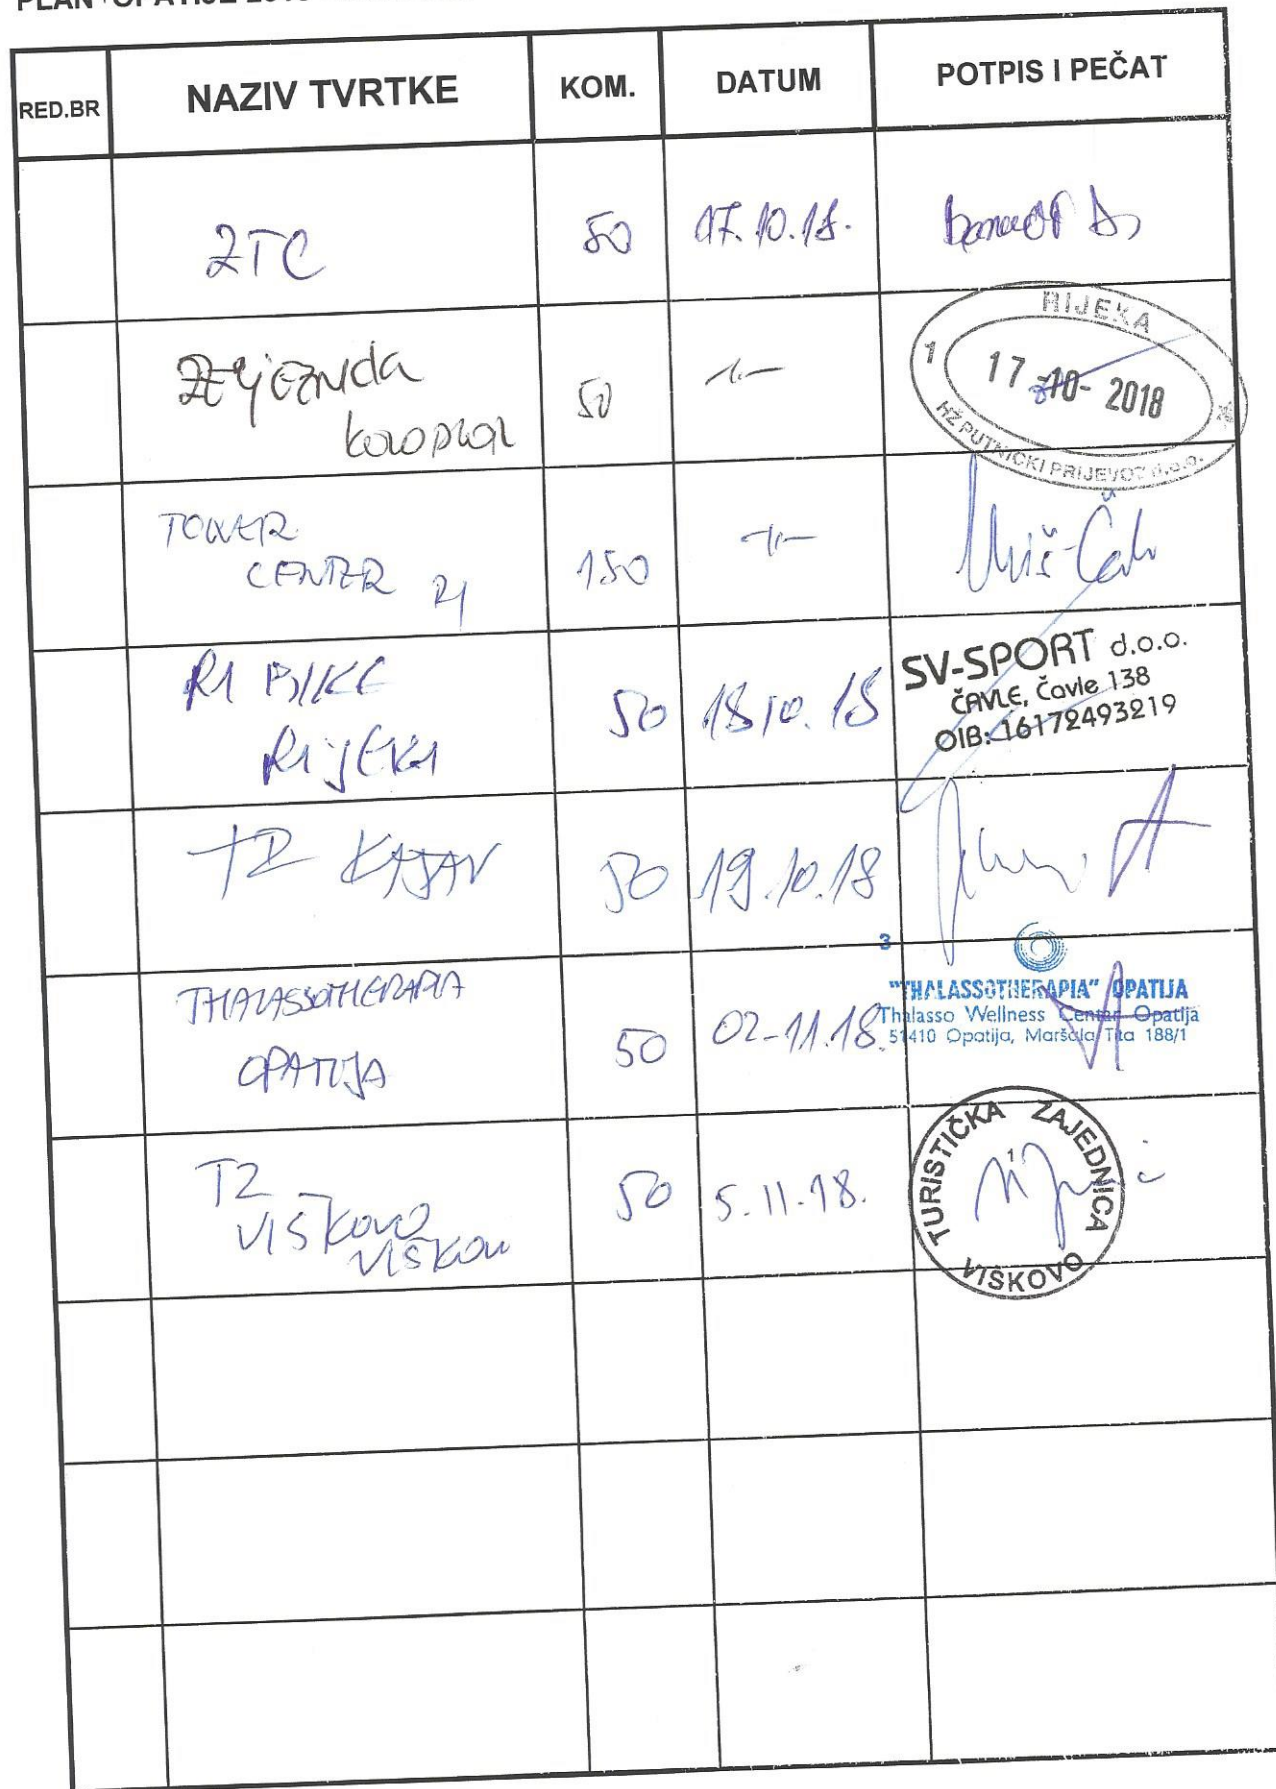 RED.BR NAZIV TVRTKE KOM. DATUM POTPIS I PEČAT
ZTC 50 17.10.18.
50 -11-
RIJEKA
1
17 -10- 2018
HŽ PUTNIČKI PRIJEVOZ d.o.o.
TOWER
CENTER RI 150 -11-
RI BIKE
RIJEKA 50 18.10.18
SV-SPORT d.o.o.
ČAVLE, Čavle 138
OIB: 16172493219
TZ 50 19.10.18
THALASSOTHERAPIA
OPATIJA 50 02-11.18.
3
"THALASSOTHERAPIA" OPATIJA
Thalasso Wellness Centar Opatija
51410 Opatija, Maršala Tita 188/1
TZ
VIŠKOVO
VIŠKOVO 50 5.11.18.
TURISTIČKA ZAJEDNICA
1
VIŠKOVO